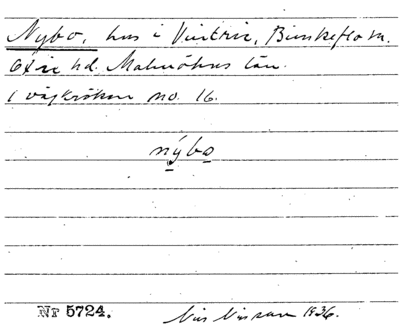 Nybo, hus i Vintrie, Bunkeflo sn.
Oxie hd. Malmöhus län.
I vägkröken no. 16.
nýbo
Nr 5724. Nils Nilsson 1936.